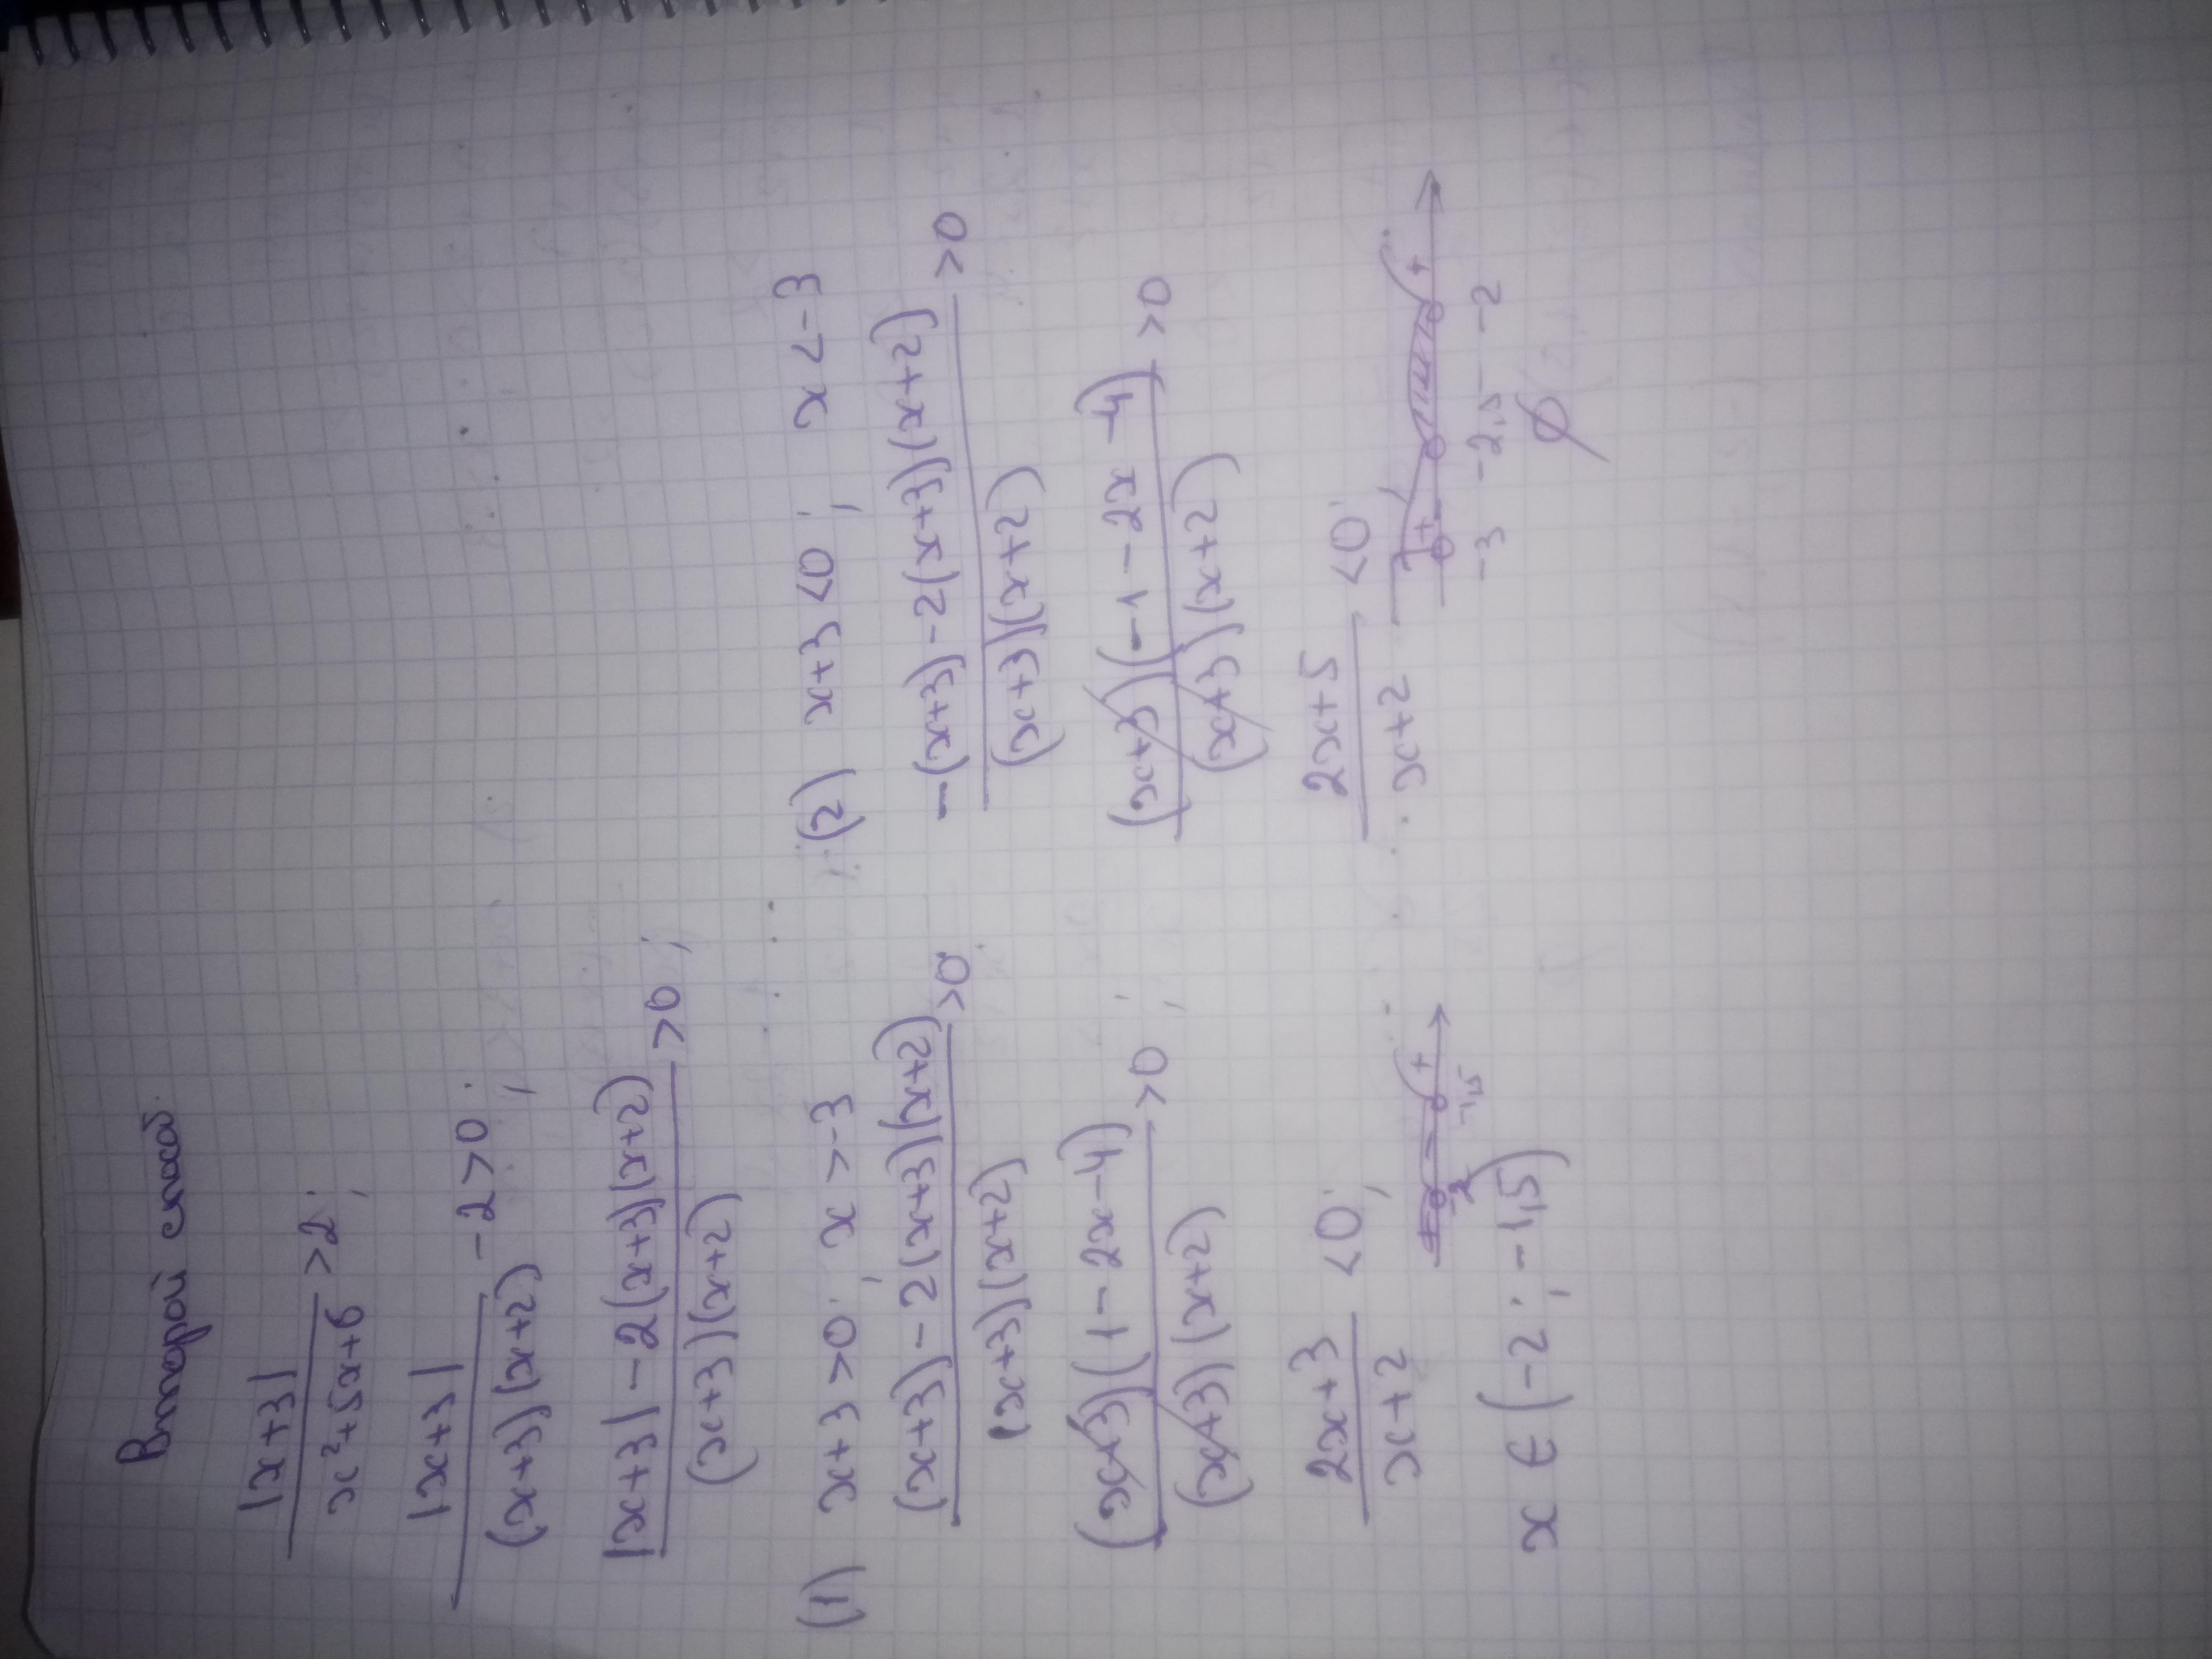 Второй способ.
|x+3| / x²+5x+6 >2;
|x+3| / (x+3)(x+2) -2>0;
|x+3|-2(x+3)(x+2) / (x+3)(x+2) >0;
(1) x+3>0; x>-3
(x+3)-2(x+3)(x+2) / (x+3)(x+2) >0;
(x+3)(1-2x-4) / (x+3)(x+2) >0;
2x+3 / x+2 <0;
+ - +
-2 -1,5
x ∈ (-2; -1,5)
(2) x+3<0; x<-3
-(x+3)-2(x+3)(x+2) / (x+3)(x+2) >0
(x+3)(-1-2x-4) / (x+3)(x+2) >0
2x+5 / x+2 <0;
+ +
-3 -2,5 -2
∅